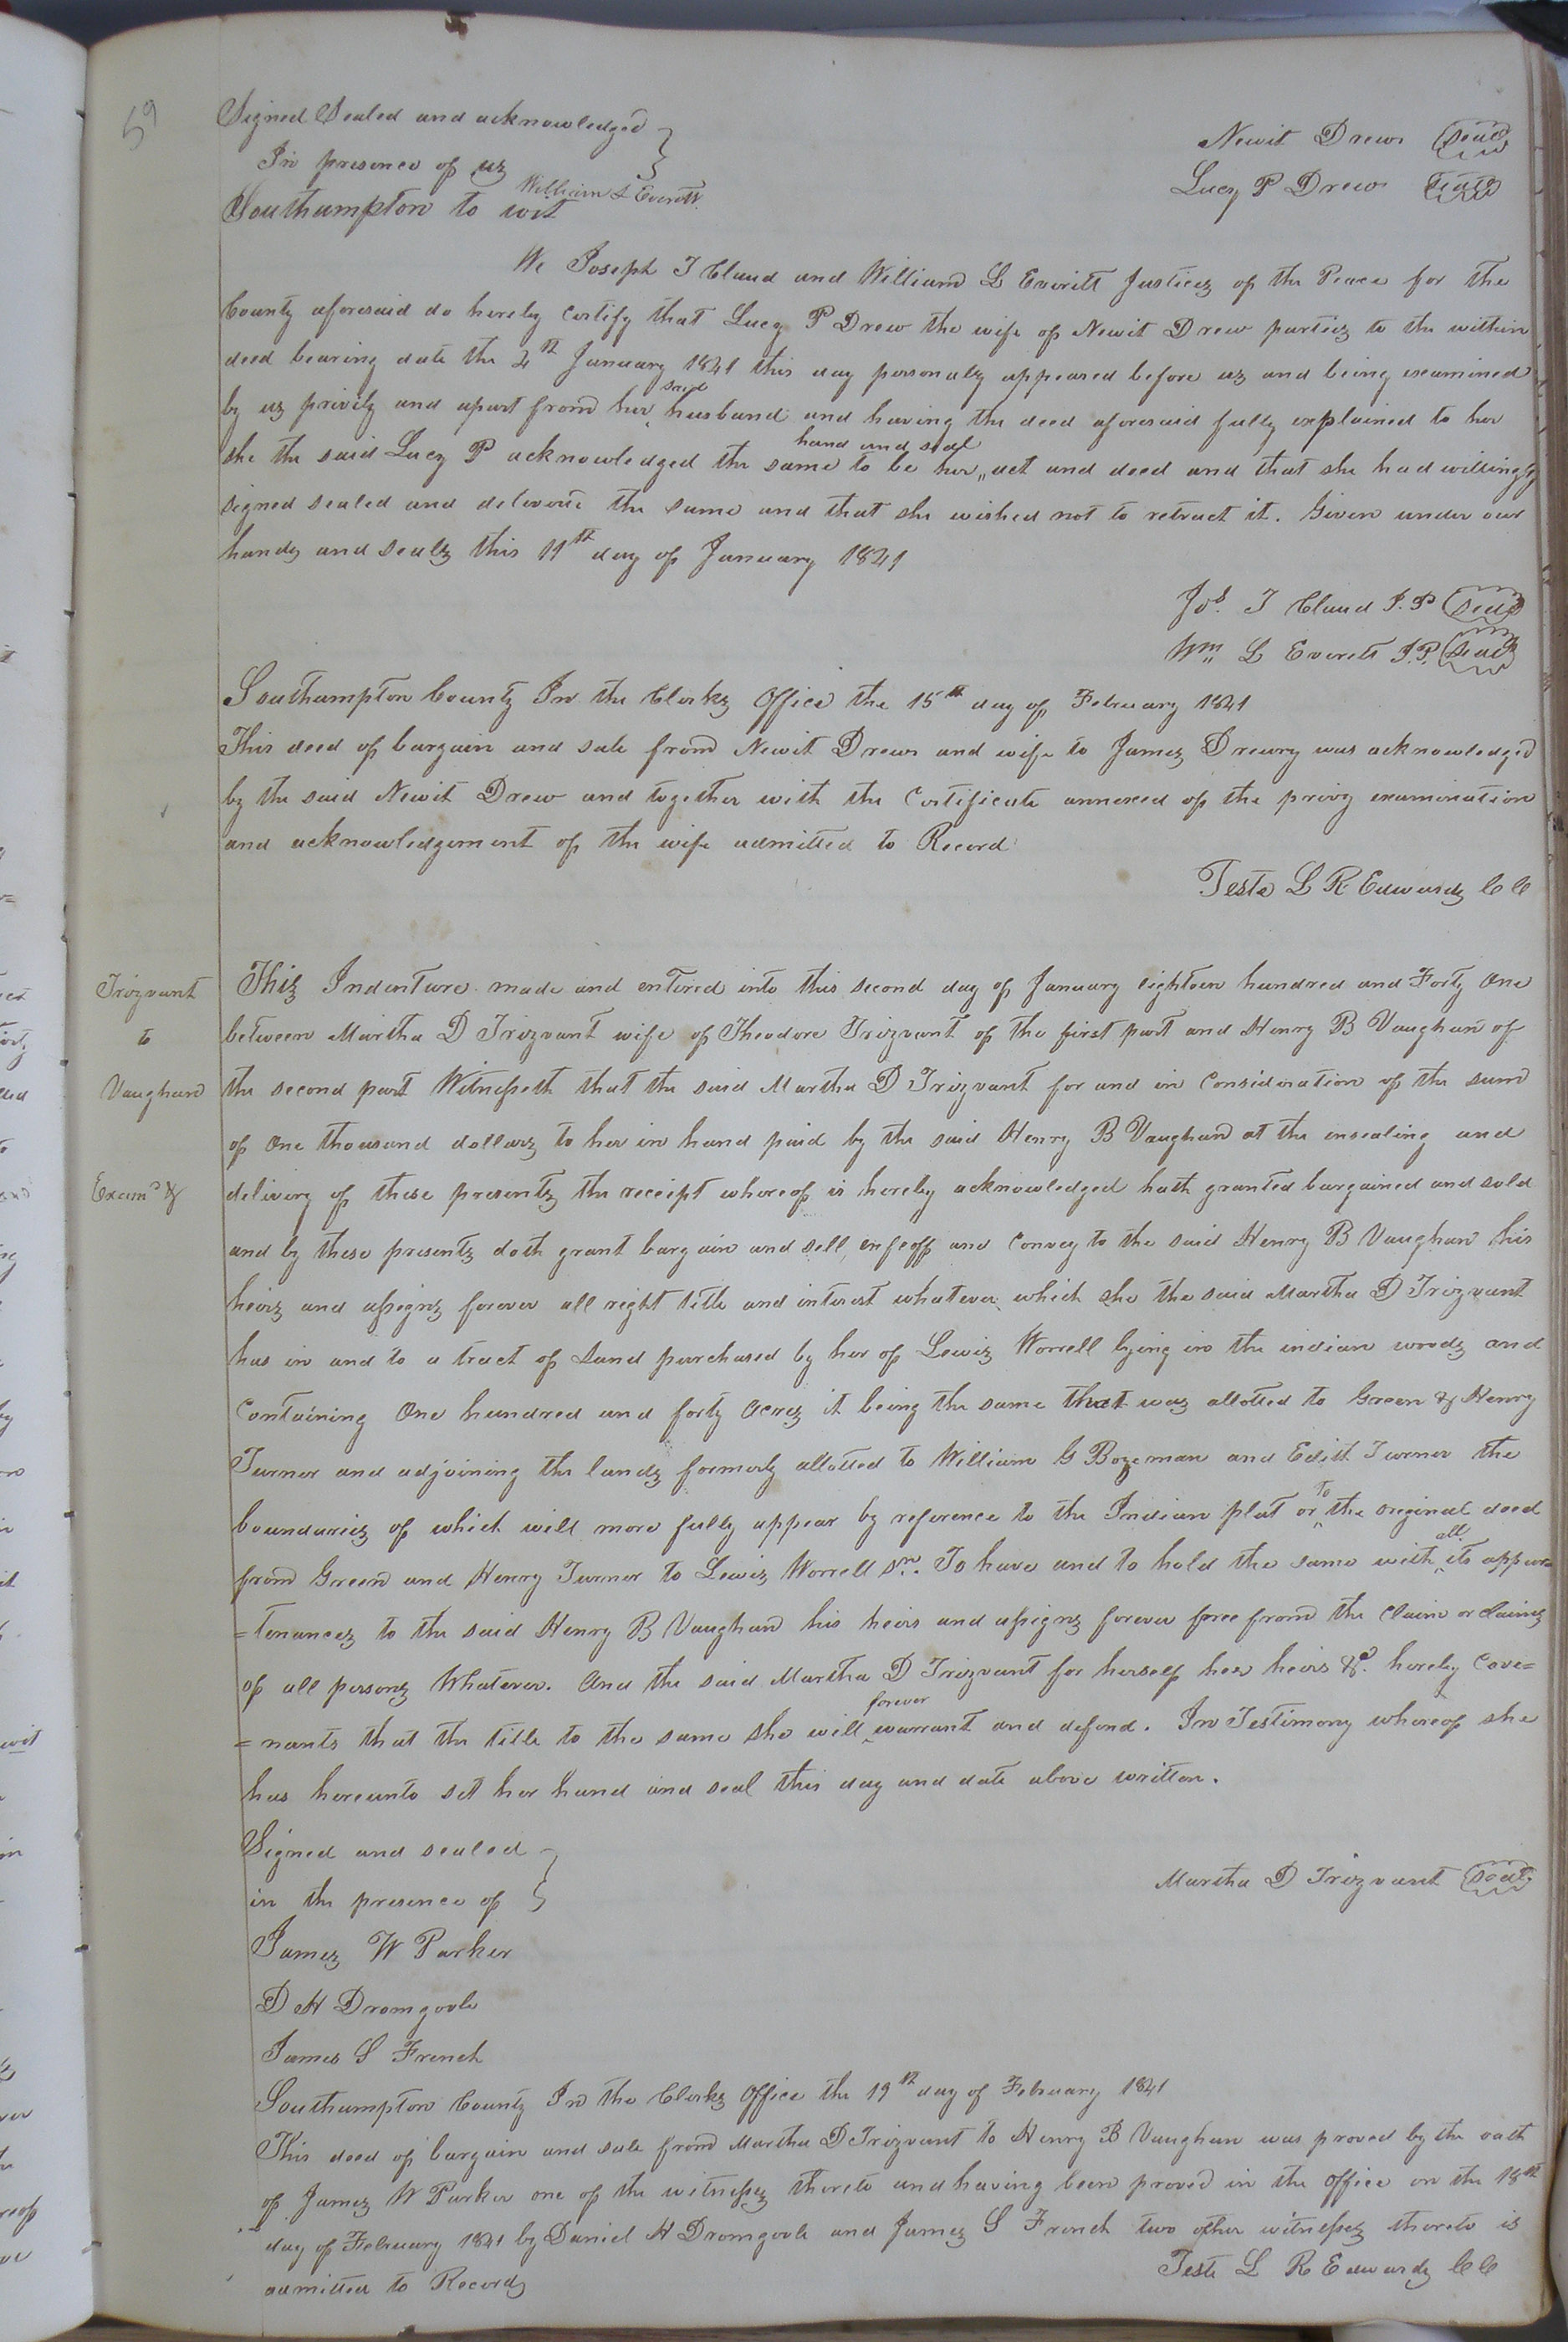 59
Signed Sealed and acknowledged
In presence of us
William L Everitt
Newit Drew Seal
Lucy P Drew Seal
Southampton to wit
We Joseph T Claud and William L Everitt Justices of the Peace for the
County aforesaid do hereby certify that Lucy P Drew the wife of Newit Drew parties to the within
deed bearing date the 2nd January 1841 this day personaly appeared before us and being examined
by us privily and apart from her said husband and having the deed aforesaid fully explained to her
she the said Lucy P acknowledged the same to be her hand and seal act and deed and that she had willingly
signed sealed and delivered the same and that she wished not to retract it. Given under our
hands and seals this 11th day of January 1841
Jos. T Claud J.P Seal
Wm L Everett J.P. Seal
Southampton County In the Clerks Office the 15th day of February 1841
This deed of bargain and sale from Newit Drew and wife to James Drewry was acknowledged
by the said Newit Drew and together with the Certificate annexed of the privy examination
and acknowledgement of the wife admitted to Record
Teste L R Edwards CC
Trezvant
to
Vaughan
Examd &
This Indenture made and entered into this second day of January eighteen hundred and Forty One
between Martha D Trezvant wife of Theodore Trezvant of the first part and Henry B Vaughan of
the second part Witnesseth that the said Martha D Trezvant for and in Consideration of the sum
of One thousand dollars to her in hand paid by the said Henry B Vaughan at the ensealing and
delivery of these presents the receipt whereof is hereby acknowledged hath granted bargained and sold
and by these presents doth grant bargain and sell, enfeoff and Convey to the said Henry B Vaughan his
heirs and assigns forever all right title and interest whatever which she the said Martha D Trezvant
has in and to a tract of Land purchased by her of Lewis Worrell lying in the indian woods and
Containing One hundred and forty Acres it being the same that was allotted to Green & Henry
Turner and adjoining the lands formerly allotted to William G Bozeman and Edith Turner the
boundaries of which will more fully appear by reference to the Indian plat or to the original deed
from Green and Henry Turner to Lewis Worrell Sr. To have and to hold the same with all its appur
=tenances to the said Henry B Vaughan his heirs and assigns forever free from the Claim or claims
of all persons Whatever. And the said Martha D Trezvant for herself her heirs &c. hereby Cove=
=nants that the title to the same she will forever warrant and defend. In Testimony whereof she
has hereunto set her hand and seal this day and date above written.
Signed and sealed
in the presence of
Martha D Trezvant Seal
James W Parker
D H Dromgoole
James S French
Southampton County In the Clerks Office the 19th day of February 1841
This deed of bargain and sale from Martha D Trezvant to Henry B Vaughan was proved by the oath
of James W Parker one of the witnesses thereto and having been proved in the Office on the 18th
day of February 1841 by Daniel H Dromgoole and James S French two other witnesses thereto is
admitted to Record
Teste L R Edwards CC